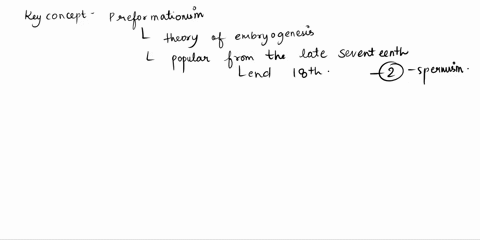 Key concept - Preformationism
theory of embryogenesis
popular from the late seventeenth
end 18th. - 2 - spermism.